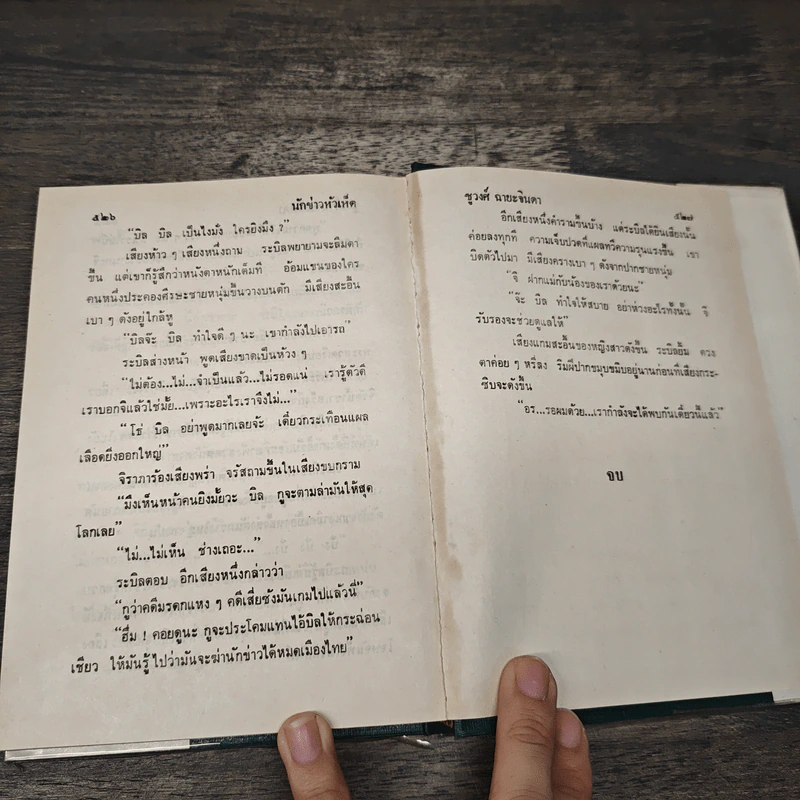 ๕๒๖ นักข่าวหัวเห็ด
“บิล บิล เป็นไงมั่ง ใครยิงมึง ?”
เสียงห้าว ๆ เสียงหนึ่งถาม ระบิลพยายามจะลืมตา
ขึ้น แต่เขาก็รู้สึกว่าหนังตาหนักเต็มที อ้อมแขนของใคร
คนหนึ่งประคองศีรษะชายหนุ่มขึ้นวางบนตัก มีเสียงสะอื้น
เบา ๆ ดังอยู่ใกล้หู
“บิลจ๊ะ บิล ทำใจดี ๆ นะ เขากำลังไปเอารถ”
ระบิลส่างหน้า พูดเสียงขาดเป็นห้วง ๆ
“ไม่ต้อง...ไม่...จำเป็นแล้ว...ไม่รอดแน่ เรารู้ตัวดี
เราบอกจิแล้วใช่มั้ย...เพราะอะไรเราจึงไม่...”
“โธ่ บิล อย่าพูดมากเลยจ้ะ เดี๋ยวกระเทือนแผล
เลือดยิ่งออกใหญ่”
จิราภาร้องเสียงพร่า จรัสถามขึ้นในเสียงขบกราม
“มึงเห็นหน้าคนยิงมั้ยวะ บิล กูจะตามล่ามันให้สุด
โลกเลย”
“ไม่...ไม่เห็น ช่างเถอะ...”
ระบิลตอบ อีกเสียงหนึ่งกล่าวว่า
“กูว่าคดีมรดกแหง ๆ คดีเสี่ยซังมันเกมไปแล้วนี่”
“ฮึ่ม ! คอยดูนะ กูจะประโคมแทนไอ้บิลให้กระฉ่อน
เชียว ให้มันรู้ไปว่ามันจะฆ่านักข่าวได้หมดเมืองไทย”
ชูวงศ์ ฉายะจินดา ๕๒๗
อีกเสียงหนึ่งคำรามขึ้นบ้าง แต่ระบิลได้ยินเสียงนั้น
ค่อยลงทุกที ความเจ็บปวดที่แผลทวีความรุนแรงขึ้น เขา
บิดตัวไปมา มีเสียงครางเบา ๆ ดังจากปากชายหนุ่ม
“จิ ฝากแม่กับน้องของเราด้วยนะ”
“จ๊ะ บิล ทำใจให้สบาย อย่าห่วงอะไรทั้งนั้น จิ
รับรองจะช่วยดูแลให้”
เสียงแกมสะอื้นของหญิงสาวดังขึ้น ระบิลยิ้ม ดวง
ตาค่อย ๆ หรี่ลง ริมฝีปากขมุบขมิบอยู่นานก่อนที่เสียงกระ-
ซิบจะดังขึ้น
“อร...รอผมด้วย...เรากำลังจะได้พบกันเดี๋ยวนี้แล้ว”
จบ